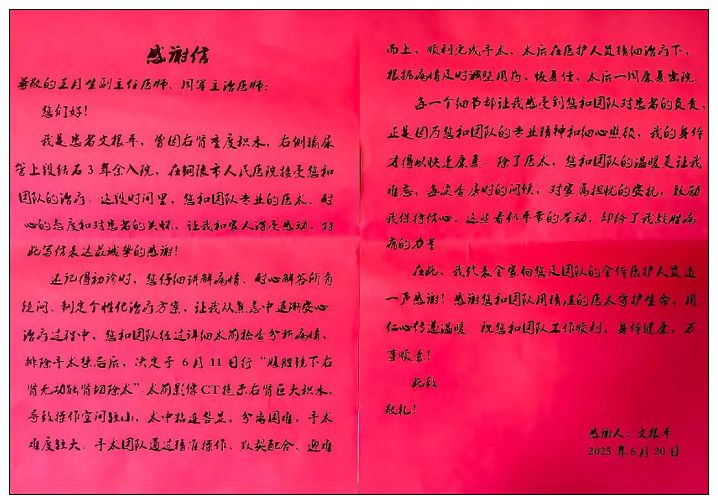 感谢信
尊敬的王月生副主任医师、周军主治医师：
您们好！
我是患者文根平，曾因右肾重度积水，右侧输尿
管上段结石 3 年余入院，在铜陵市人民医院接受您和
团队的治疗。这段时间里，您和团队专业的医术、耐
心的态度和对患者的关怀，让我和家人深受感动，特
此写信表达最诚挚的感谢！
还记得初诊时，您仔细讲解病情、耐心解答所有
疑问、制定个性化治疗方案，让我从焦虑中逐渐安心。
治疗过程中，您和团队经过详细术前检查分析病情，
排除手术禁忌后，决定于 6 月 11 日行“腹腔镜下右
肾无功能肾切除术”。术前影像 CT 提示右肾巨大积水，
导致操作空间较小，术中粘连明显，分离困难，手术
难度较大。手术团队通过精准操作、默契配合、迎难
而上，顺利完成手术，术后在医护人员精细治疗下，
根据病情及时调整用药，恢复佳，术后一周康复出院。
每一个细节都让我感受到您和团队对患者的负责，
正是因为您和团队的专业精神和细心照顾，我的身体
才得以快速康复。除了医术，您和团队的温暖更让我
难忘，每次查房时的问候，对家属担忧的安抚，鼓励
我保持信心，这些看似平常的举动，却给了我战胜病
痛的力量。
在此，我代表全家向您及团队的全体医护人员道
一声感谢！感谢您和团队用精湛的医术守护生命，用
仁心传递温暖。祝您和团队工作顺利，身体健康，万
事顺意！
此致
敬礼！
感谢人：文根平
2025 年 6 月 20 日